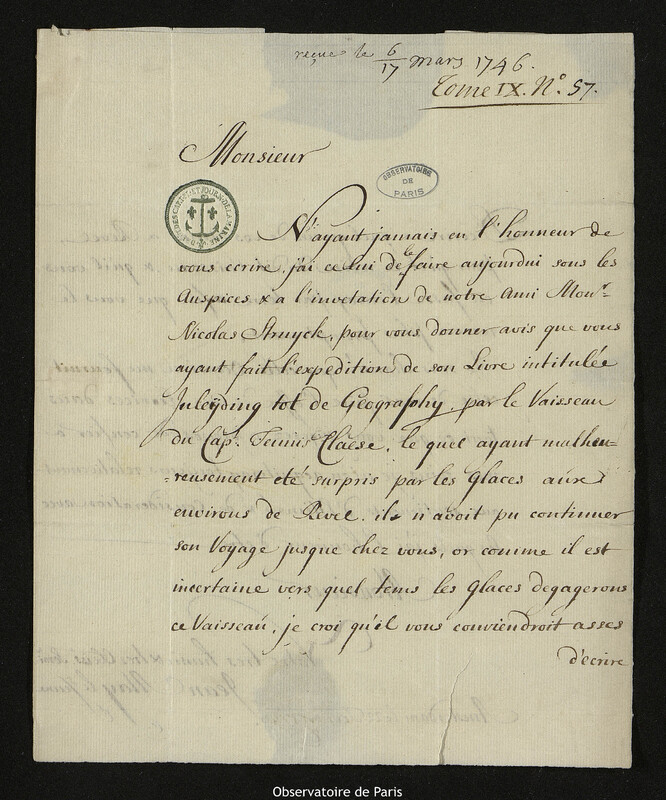 reçue le 6/17 mars 1746.
Tome IX. N.º 57.
Monsieur
OBSERVATOIRE
DE
PARIS
N'ayant jamais eu l'honneur de
vous ecrire, j'ai celui de le faire aujourdui sous les
Auspices & a l'invetation de notre Ami Mon.r
Nicolas Struyck, pour vous donner avis que vous
ayant fait l'expedition de son Livre intitulée
Inleyding tot de Geography, par le Vaisseau
du Cap.t Teunis Claese, le quel ayant malheu=
=reusement eté surpris par les Glaces aúx
environs de Revel, il n'avoit pu continuer
son Voyage jusque chez vous, or comme il est
incertaine vers quel tems les Glaces degagerons
ce Vaisseaú, je croi qu'il vous conviendroit asses
d'ecrire
Observatoire de Paris